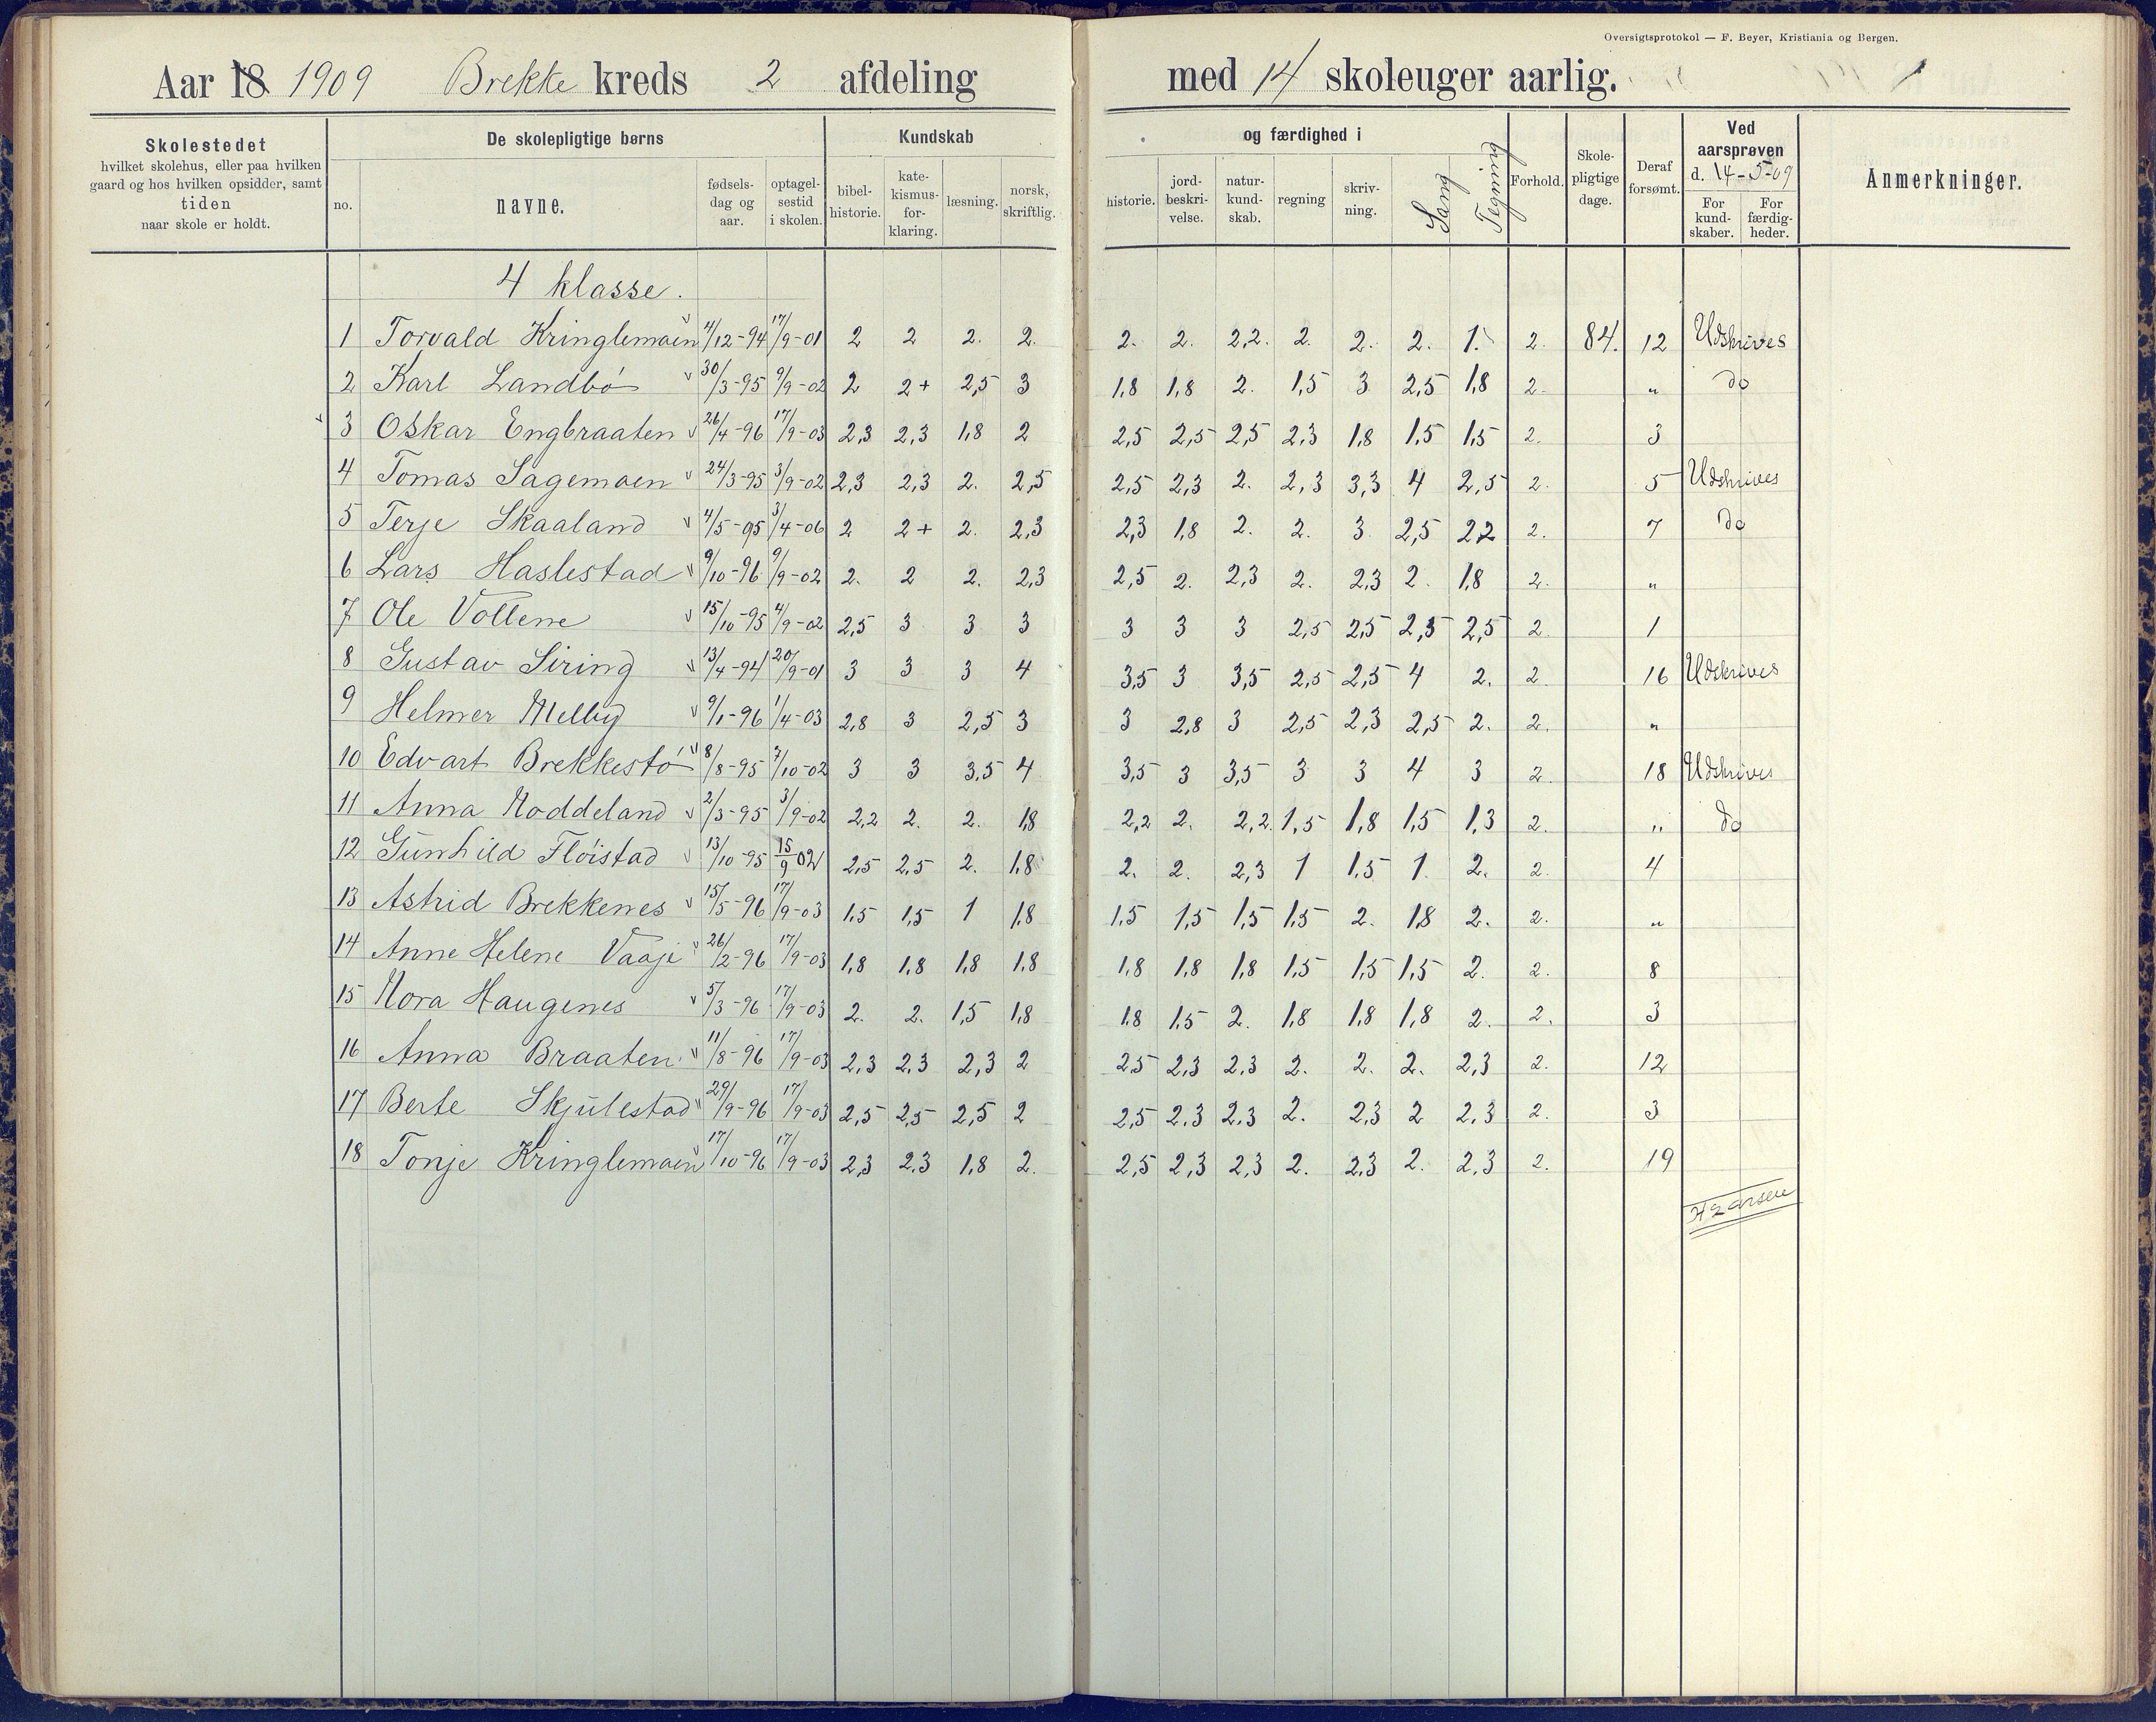 Oversigtsprotokol — F. Beyer, Kristiania og Bergen.
Aar 18 1909 Brekke kreds 2 afdeling med 14 skoleuger aarlig. 1
Skolestedet
hvilket skolehus, eller paa hvilken
gaard og hos hvilken opsidder, samt
tiden
naar skole er holdt.
De skolepligtige børns
no.
navne.
fødsels-
dag og
aar.
optagel-
sestid
i skolen.
Kundskab
bibel-
historie.
kate-
kismus-
for-
klaring.
læsning.
norsk,
skriftlig.
og færdighed i
historie.
jord-
beskri-
velse.
natur-
kund-
skab.
regning
skriv-
ning.
Sang
Tegning
Forhold.
Skole-
pligtige
dage.
Deraf
forsømt.
Ved
aarsprøven
d. 14-5-09
For
kund-
skaber.
For
færdig-
heder.
Anmerkninger.
4 klasse.
1 Torvald Kringlemoen 4/12-94 17/9-01 2 2 2. 2. 2. 2. 2,2. 2. 2. 2. 1. 2. 84. 12 Udskrives
2 Karl Landbö 30/3-95 9/9-02 2 2+ 2,5 3 1,8 1,8 2. 1,5 3 2,5 1,8 2. " do
3 Oskar Engbraaten 26/4-96 17/9-03 2,3 2,3 1,8 2 2,5 2,5 2,5 2,3 1,8 1,5 1,5 2. 3
4 Tomas Sagemoen 24/3-95 3/9-02 2,3 2,3 2. 2,5 2,5 2,3 2. 2,3 3,3 4 2,5 2. 5 Udskrives
5 Terje Skaaland 4/5-95 3/4-06 2 2+ 2. 2,3 2,3 1,8 2. 2. 3 2,5 2,2 2. 7 do
6 Lars Haslestad 9/10-96 9/9-02 2. 2 2. 2,3 2,5 2. 2,3 2. 2,3 2. 1,8 2. "
7 Ole Vollene 15/10-95 4/9-02 2,5 3 3 3 3 3 3 2,5 2,5 2,5 2,5 2. 1
8 Gustav Siring 13/4-94 20/9-01 3 3 3 4 3,5 3 3,5 2,5 2,5 4 2. 2. 16 Udskrives
9 Helmer Melby 9/1-96 1/4-03 2,8 3 2,5 3 3 2,8 3 2,5 2,3 2,5 2. 2. "
10 Edvart Brekkestö 8/8-95 7/10-02 3 3 3,5 4 3,5 3 3,5 3 3 4 3 2. 18 Udskrives
11 Anna Noddeland 2/3-95 3/9-02 2,2 2. 2. 1,8 2,2 2. 2,2 1,5 1,8 1,5 1,3 2. " do
12 Gunhild Flöistad 13/10-95 15/9 02 2,5 2,5 2. 1,8 2. 2. 2,3 1 1,5 1 2. 2. 4
13 Astrid Brekkenes 15/5-96 17/9-03 1,5 1,5 1 1,8 1,5 1,5 1,5 1,5 2. 1,8 2. 2. "
14 Anne Helene Vaaje 26/2-96 17/9-03 1,8 1,8 1,8 1,8 1,8 1,8 1,8 1,5 1,5 1,5 2. 2. 8
15 Nora Haugenes 5/3-96 17/9-03 2. 2. 1,5 1,8 1,8 1,5 2. 1,8 1,8 1,8 2. 2. 3
16 Anna Braaten 11/8-96 17/9-03 2,3 2,3 2,3 2 2,5 2,3 2,3 2. 2. 2. 2,3 2. 12
17 Berte Skjulestad 29/9-96 17/9-03 2,5 2,5 2,5 2 2,5 2,3 2,3 2. 2,3 2 2,3 2. 3
18 Tonje Kringlemoen 17/10-96 17/9-03 2,3 2,3 1,8 2. 2,5 2,3 2,3 2. 2,3 2. 2,3 2. 19